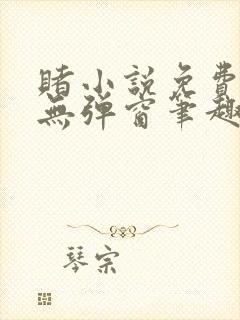 賭小説免費
無彈窗筆趣
琴宗